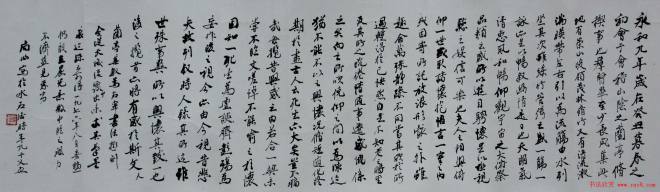 永和九年歲在癸丑暮春之
初會于會稽山陰之蘭亭脩
稧事也群賢畢至少長咸集此
地有崇山峻領茂林脩竹又有清流激
湍暎帶左右引以為流觴曲水列
坐其次雖無絲竹管弦之盛一觴一
詠亦足以暢敘幽情是日也天朗氣
清惠風和暢仰觀宇宙之大俯察
品類之盛所以遊目騁懷足以極視
聽之娛信可樂也夫人之相與俯
仰一世或取諸懷抱悟言一室之內
或因寄所託放浪形骸之外雖
趣舍萬殊靜躁不同當其欣於所
遇暫得於己快然自足不知老之將至
及其所之既惓情隨事遷感慨係
之矣向之所欣俛仰之閒以為陳迹
猶不能不以之興懷況脩短隨化終
期於盡古人云死生亦大矣豈不痛
哉每攬昔人興感之由若合一契未
嘗不臨文嗟悼不能喻之於懷
固知一死生為虛誕齊彭殤為
妄作後之視今亦由今之視昔悲
夫故列敘時人錄其所述雖
世殊事異所以興懷其致一也
後之攬者亦將有感於斯文
书法欣赏
www.yac8.com